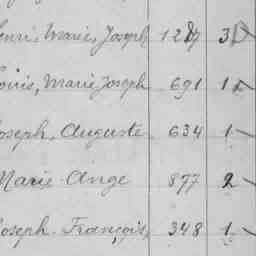 enri, Marie, Joseph 1287 3
ouis, Marie Joseph 691 1
oseph, Auguste 634 1
Marie-Ange 877 2
oseph-François, 348 1